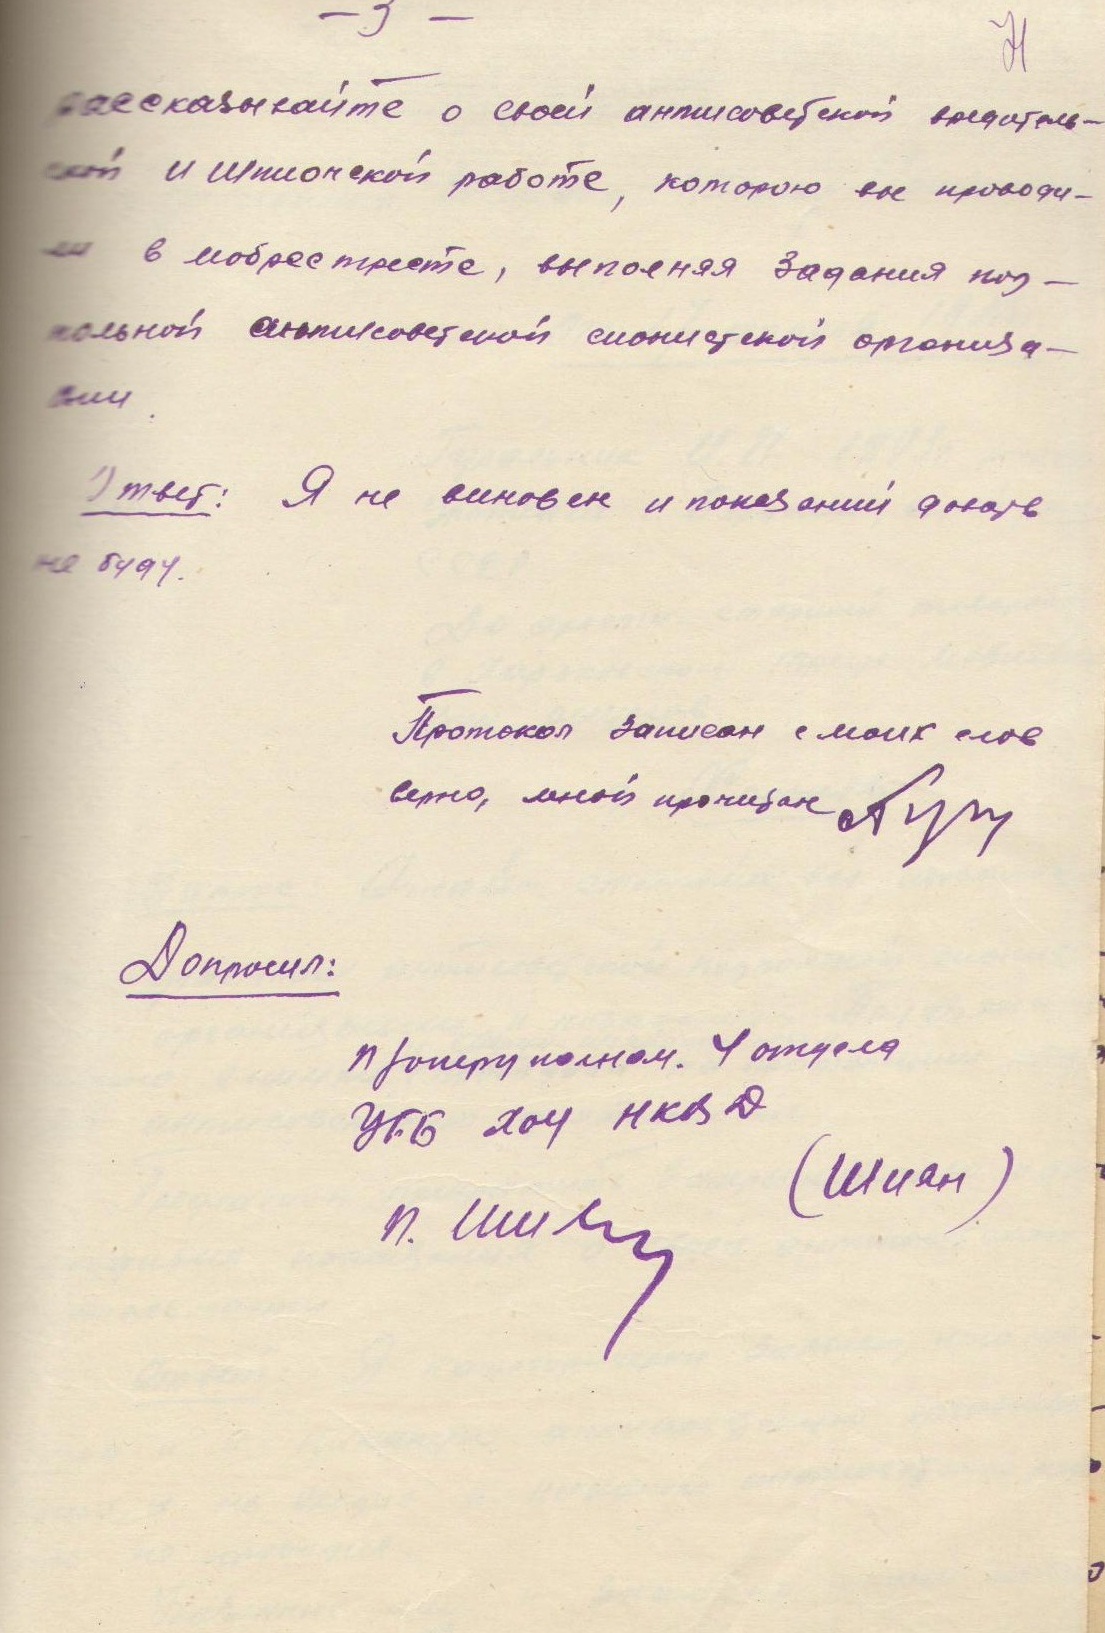 — 3 —
рассказывайте о своей антисоветской вредитель-
ской и шпионской работе, которою вы проводи-
ли в мобрестресте, выполняя задания под-
польной антисоветской сионистской организа-
ции.
Ответ: Я не виновен и показаний давать
не буду.
Протокол записан с моих слов
верно, мной прочитан
Допросил:
П/оперуполном. 4 отдела
УГБ ХОУ НКВД
(Шиян)